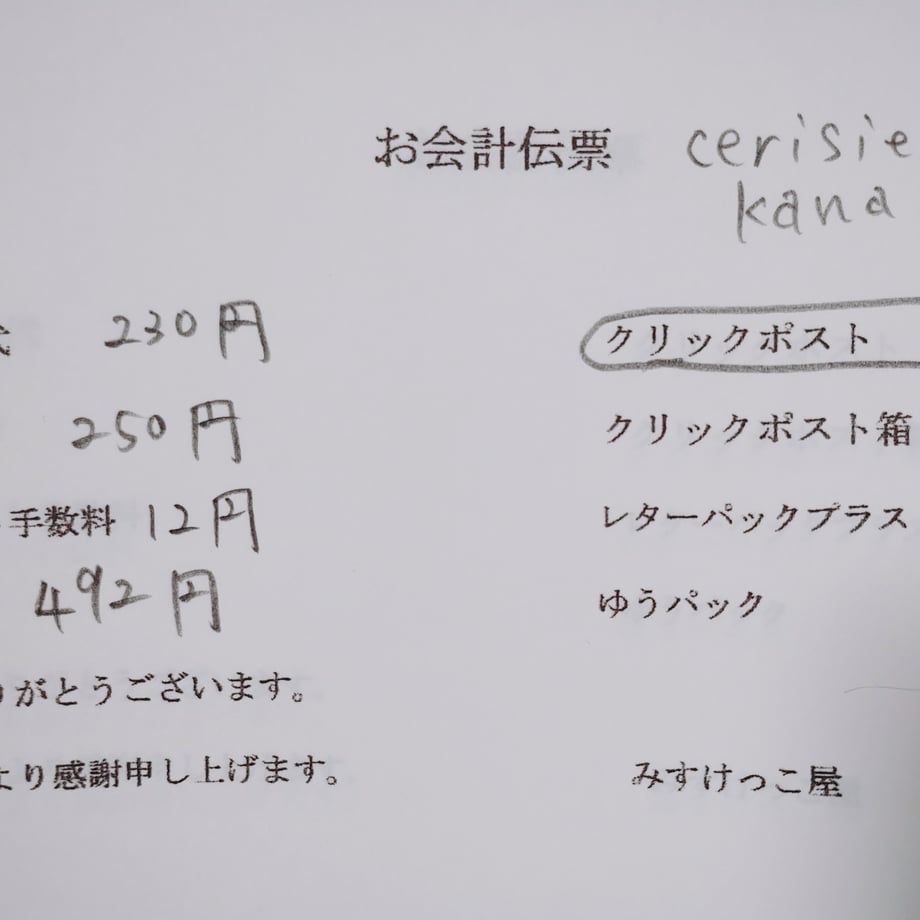 お会計伝票
cerisie
kana
230円
クリックポスト
250円
クリックポスト箱
手数料 12円
レターパックプラス
492円
ゆうパック
がとうございます。
より感謝申し上げます。
みすけっこ屋